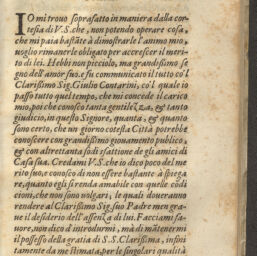 IO mi trouo soprafatto in maniera dalla cor-
tesia di V.S. che, non potendo operare cosa,
che mi paia bastāte à dimostrarle l'ammo mio,
uoglio rimanerle obligato per accrescer il meri-
to di lei. Hebbi non picciolo, ma grandissimo se
gno dell'amor suo. e fu communicato il tutto co'l
Clarissimo Sig. Giulio Contarini, co'l quale io
passo tutto quel tempo, che mi concede il carico
mio, poi che conosco tanta gentilezza, & tanto
giudicio, in questo Signore, quanta, & quanto
sono certo, che un giorno cotesta Città potrebbe
conoscere con grandissimo giouamento publico,
& con altrettanta sodisfattione de gli amici di
Casa sua. Credami V.S. che io dico poco del me
rito suo, e conosco di non essere bastante à spiega
re, quanto egli si renda amabile con quelle cōdi
cioni, che non sono uolgari, le quali doueranno
rendere al Clarissimo Sig. suo Padre men gra-
ue il desiderio dell'assenza di lui. Facciami fa-
uore, non dico d'introdurmi, mà di mātenermi
il possesso della gratia di S.S. Clarissima, infini
tamente da me stimata, per le singolari qualità